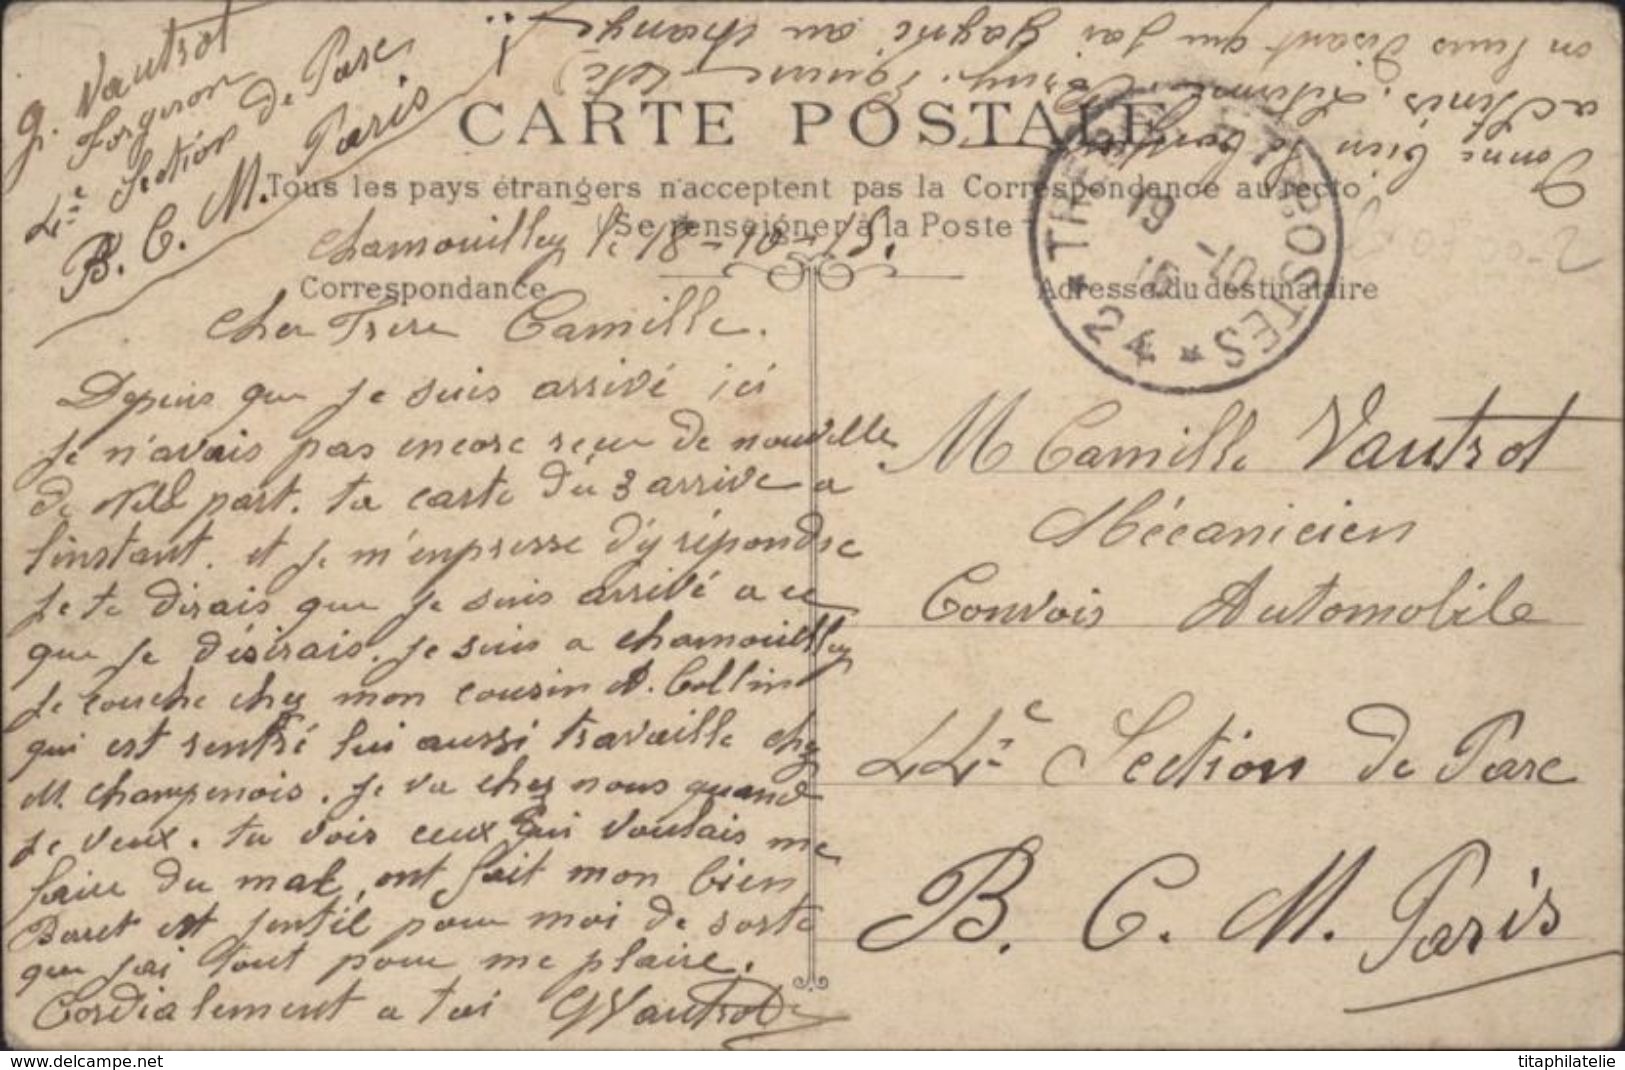 G. Vautrot
Forgeron
44e Section de Parc
B. C. M. Paris
Donne bien le bonjour
a Denis. Leturme,
en leurs disant que j'ai gagné au change
CARTE POSTALE
Tous les pays étrangers n'acceptent pas la Correspondance au recto
(Se renseigner à la Poste
chamouilley le 18-10-15.
Correspondance
Adresse du destinataire
TRÉSOR ET POSTES
19 -10 15
* 24 *
cher Frere Camille.
Depuis que je suis arrivé ici
je n'avais pas encore reçu de nouvelle
de nulle part. ta carte du 3 arrive a
l'instant. et je m'enpresse d'y répondre
je te dirais que je suis arrivé a ce
que je désirais. je suis a chamouilley
je couche chez mon cousin A. Collin
qui est rentré lui aussi travaille chez
M. champenois. je va chez nous quand
je veux. tu vois ceux qui voulais me
faire du mal, ont fait mon bien
Baret est jentil pour moi de sorte
que j'ai tout pour me plaire.
Cordialement a toi GVautrot
M Camille Vautrot
Mécanicien
Convois Automobile
44e Section de Parc
B. C. M. Paris
www.delcampe.net
titaphilatelie